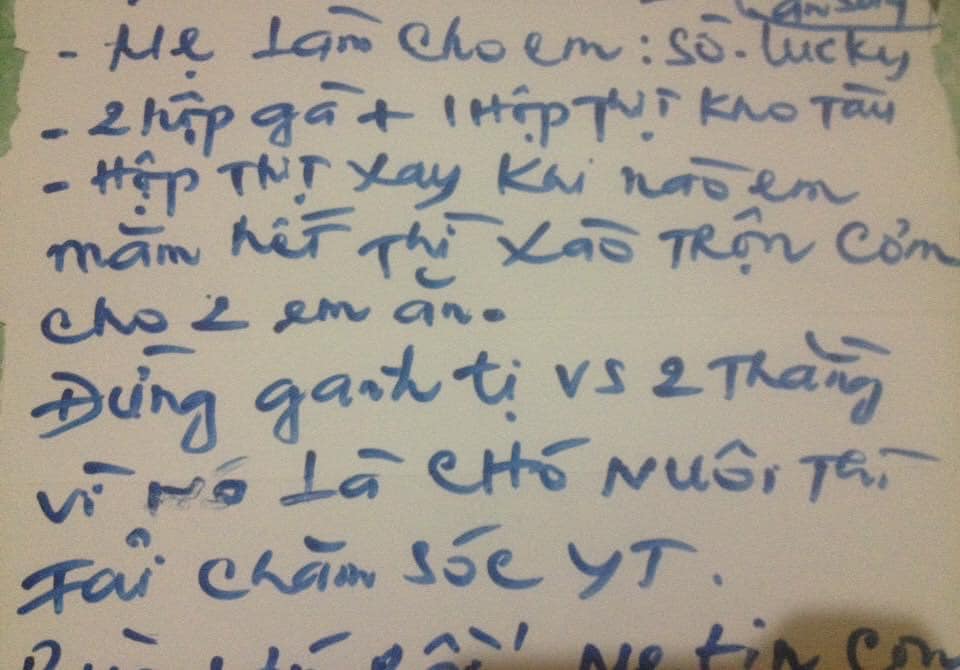 ăn sáng
- Mẹ Làm cho em: Sò - lucky
- 2 hộp gà + 1 Hộp Thịt Kho Tàu
- Hộp Thịt xay khi nào em
măm hết Thì xào Trộn Cơm
cho 2 em ăn.
Đừng ganh tị vs 2 Thằng
vì Nó Là CHÓ NUÔi Thì
Fải chăm sóc YT.
Mẹ tin con